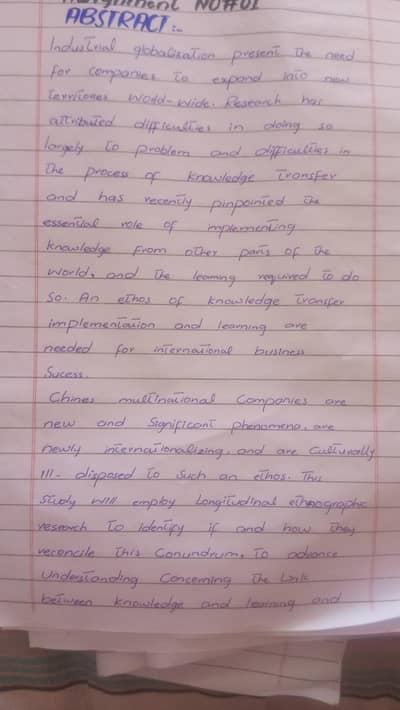 Assignment NO#01
ABSTRACT:-
Industrial globalisation present the need
for companies to expand into new
territories world-wide. Research has
attributed difficulties in doing so
largely to problem and difficulties in
the process of knowledge transfer
and has recently pinpointed the
essential role of implementing
knowledge from other parts of the
world, and the learning required to do
so. An ethos of knowledge transfer
implementation and learning are
needed for international business
Sucess.
Chines multinational Companies are
new and Significant phenomena, are
newly internationalizing, and are Culturally
Ill- disposed to such an ethos. This
study will employ Longitudinal ethnographic
research to identify if and how they
reconcile this Conundrum, to advance
Understanding Concerning the Link
between knowledge and learning and